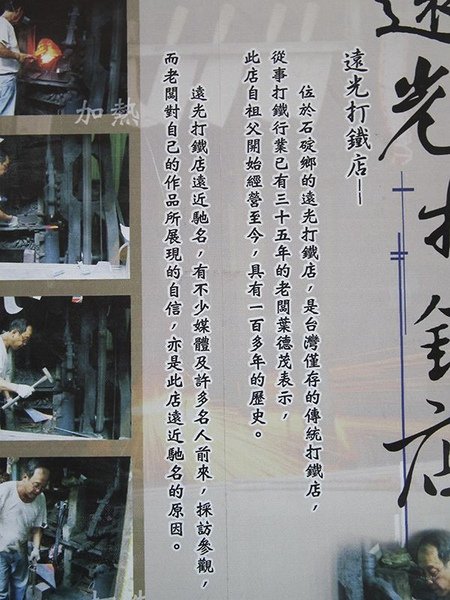 遠光打鐵店
遠光打鐵店—
位於石碇鄉的遠光打鐵店，是台灣僅存的傳統打鐵店，
從事打鐵行業已有三十五年的老闆葉德茂表示，
此店自祖父開始經營至今，具有一百多年的歷史。
遠光打鐵店遠近馳名，有不少媒體及許多名人前來，採訪參觀，
而老闆對自己的作品所展現的自信，亦是此店遠近馳名的原因。
加熱